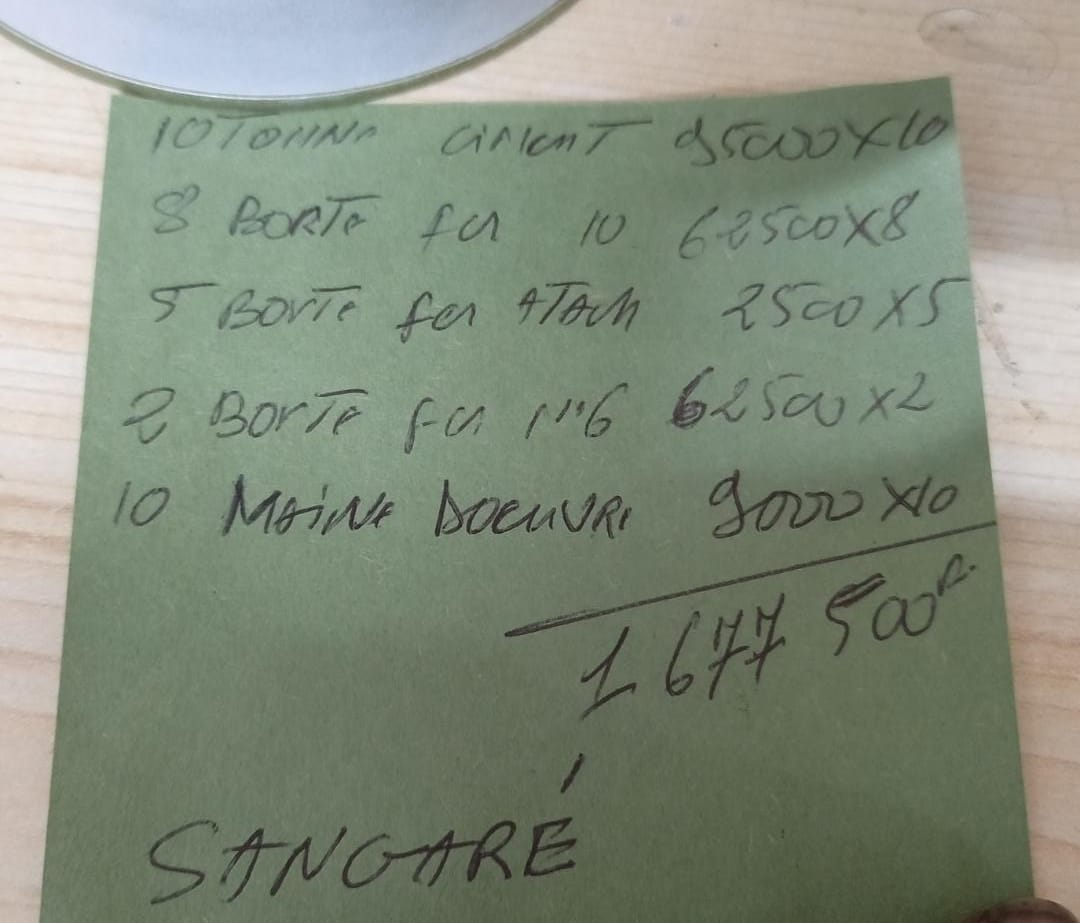 10 TONNE CIMENT 95000X10
8 BORTE fer 10 62500X8
5 BORTE fer ATACH 2500X5
2 BORTE fer 1"6 62500X2
10 MAINE DOEUVRE 9000X10
1 677 500F.
SANGARÉ